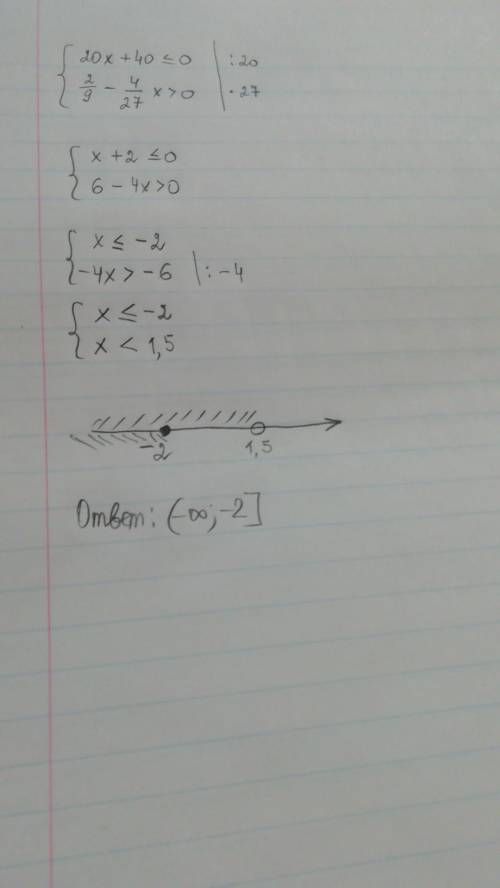 { 20x + 40 ≤ 0 | : 20
{ 2/9 − 4/27 x > 0 | · 27
{ x + 2 ≤ 0
{ 6 − 4x > 0
{ x ≤ −2
{ −4x > −6 | : −4
{ x ≤ −2
{ x < 1,5
−2 1,5
Ответ: (−∞; −2]